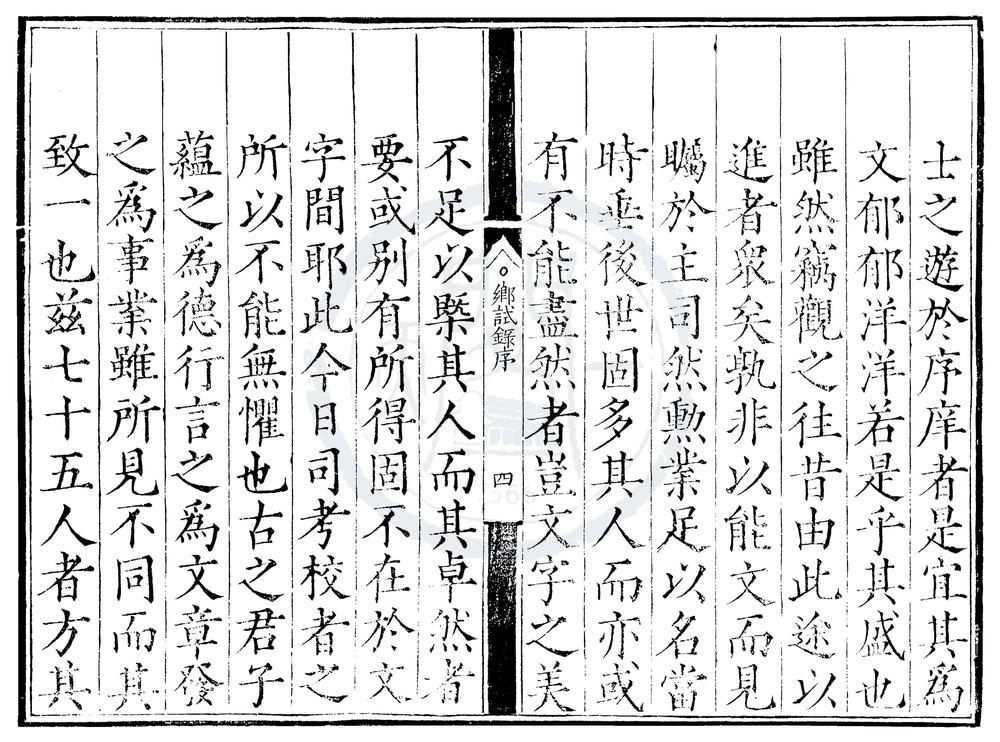 士之遊於序庠者是宜其為
文郁郁洋洋若是乎其盛也
雖然竊觀之往昔由此途以
進者衆矣孰非以能文而見
矚於主司然勲業足以名當
時垂後世固多其人而亦或
有不能盡然者豈文字之美
鄉試錄序
四
不足以槩其人而其卓然者
要或别有所得固不在於文
字間耶此今日司考校者之
所以不能無懼也古之君子
蘊之為德行言之為文章發
之為事業雖所見不同而其
致一也兹七十五人者方其